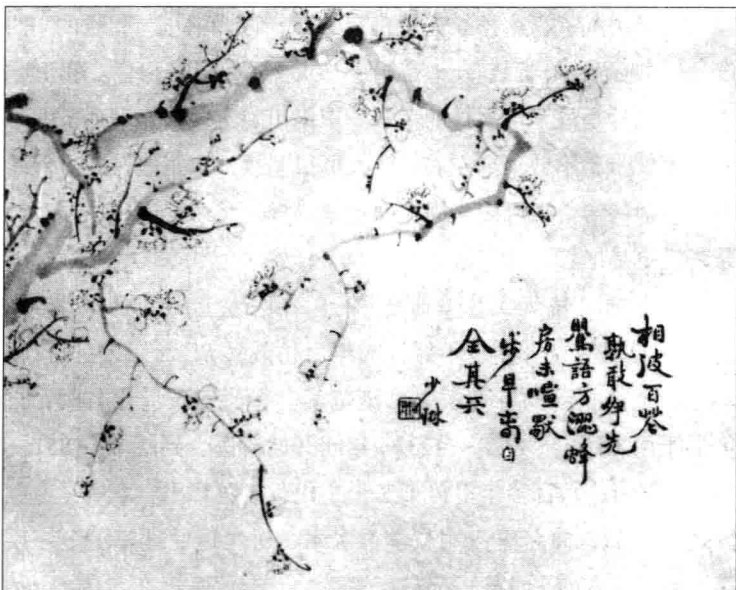 相彼百花
孰敢爭先
鸎語方澀蜂
房未喧獨
步早春自
全其天
少